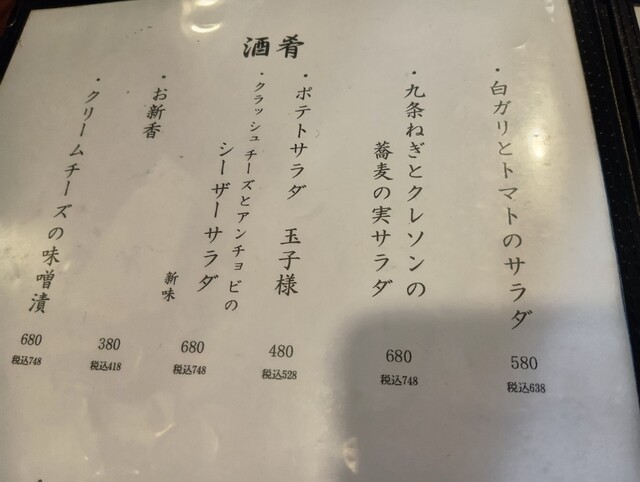 酒肴
・白ガリとトマトのサラダ
580
税込638
・九条ねぎとクレソンの
蕎麦の実サラダ
680
税込748
・ポテトサラダ 玉子様
480
税込528
・クラッシュチーズとアンチョビの
シーザーサラダ
新味
680
税込748
・お新香
380
税込418
・クリームチーズの味噌漬
680
税込748